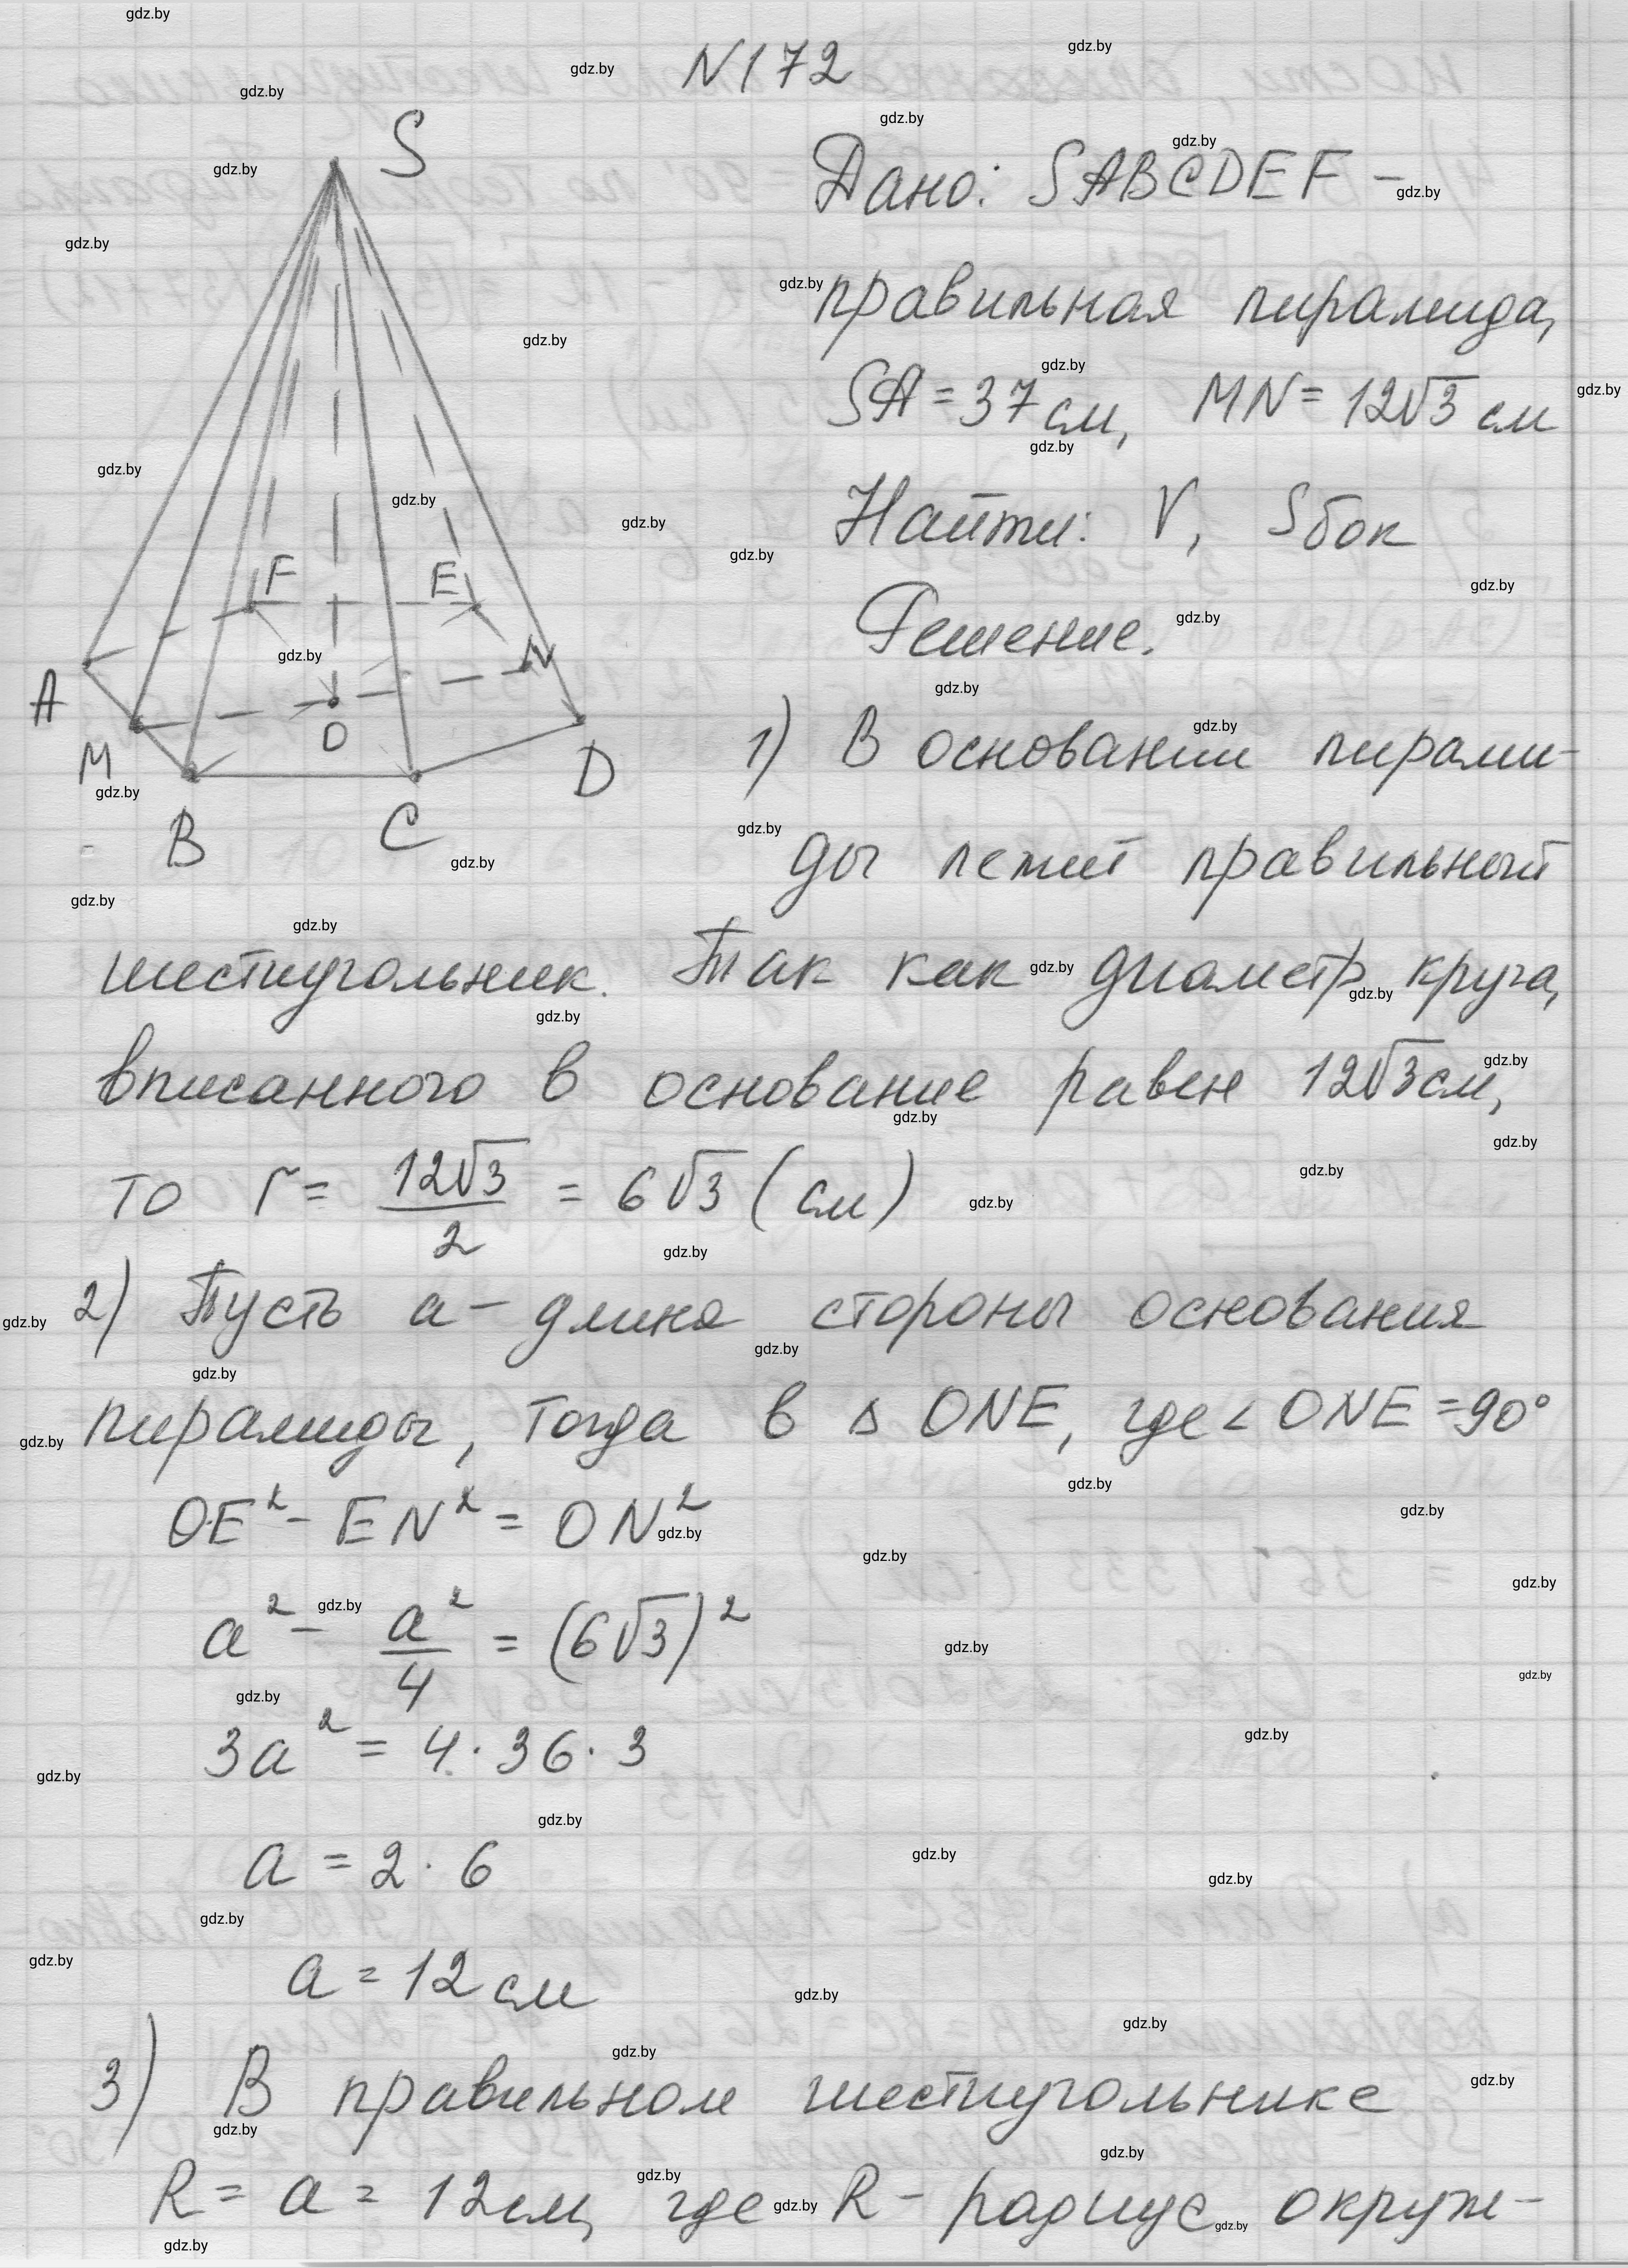 N172
S
Дано: SABCDEF –
правильная пирамида,
SA = 37 см, MN = 12√3 см
Найти: V, Sбок
F E
Решение.
A N
M O D
B C
1) В основании пирами-
ды лежит правильный
шестиугольник. Так как диаметр круга,
вписанного в основание равен 12√3 см,
то r = 12√3/2 = 6√3 (см)
2) Пусть a – длина стороны основания
пирамиды, тогда в △ ONE, где ∠ ONE = 90°
OE² - EN² = ON²
a² - a²/4 = (6√3)²
3a² = 4 · 36 · 3
a = 2 · 6
a = 12 см
3) В правильном шестиугольнике
R = a = 12 см, где R – радиус окруж-
gdz.by